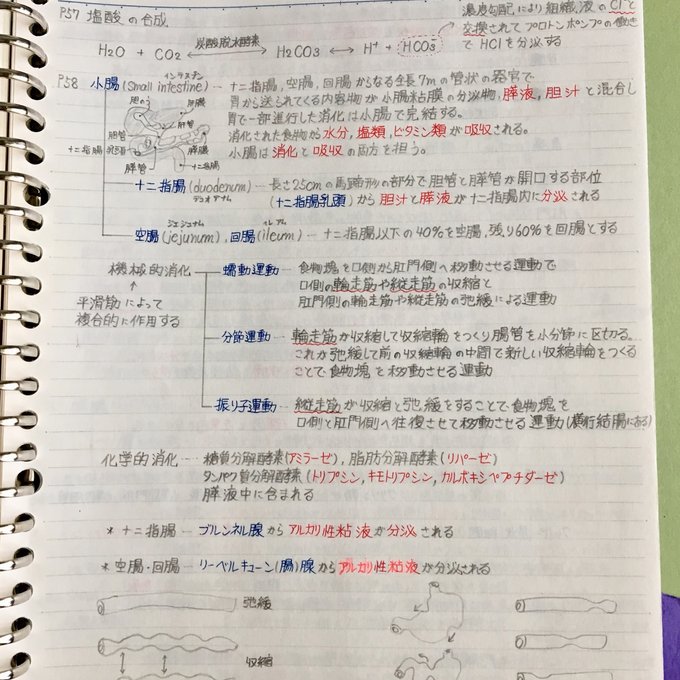 P57 塩酸の合成
濃度勾配により組織液のCl⁻と
交換されてプロトンポンプの働き
でHClを分泌する
炭酸脱水酵素
H2O + CO2 → H2CO3 ↔ H⁺ + HCO3⁻
P58 小腸(Small intestine) … 十二指腸, 空腸, 回腸からなる全長7mの管状の器官で
インテスティン
胃から送られてくる内容物が小腸粘膜の分泌物, 膵液, 胆汁と混合し
胃で一部進行した消化は小腸で完結する。
消化された食物から水分, 塩類, ビタミン類が吸収される。
小腸は消化と吸収の両方を担う。
胆のう
肝臓
胆管
肝管
十二指腸
膵臓
膵管
十二指腸
十二指腸(duodenum) … 長さ25cmの馬蹄形の部分で胆管と膵管が開口する部位
デュオデナム
(十二指腸乳頭)から胆汁と膵液が十二指腸内に分泌される
ジェジュナム イレアム
空腸(jejunum), 回腸(ileum) … 十二指腸以下の40%を空腸, 残り60%を回腸とする
機械的消化
平滑筋によって
複合的に作用する
蠕動運動 … 食物塊を口側から肛門側へ移動させる運動で
口側の輪走筋や縦走筋の収縮と
肛門側の輪走筋や縦走筋の弛緩による運動
分節運動 … 輪走筋が収縮して収縮輪をつくり腸管を小分節に区切る。
これが弛緩して前の収縮輪の中間で新しい収縮輪をつくる
ことで食物塊を移動させる運動
振り子運動 … 縦走筋が収縮と弛緩をすることで食物塊を
口側と肛門側へ往復させて移動させる運動(横行結腸にある)
化学的消化 … 糖質分解酵素(アミラーゼ), 脂肪分解酵素(リパーゼ)
タンパク質分解酵素(トリプシン, キモトリプシン, カルボキシペプチダーゼ)
膵液中に含まれる
* 十二指腸 … ブルンネル腺からアルカリ性粘液が分泌される
* 空腸・回腸 … リーベルキューン(腸)腺からアルカリ性粘液が分泌される
弛緩
収縮